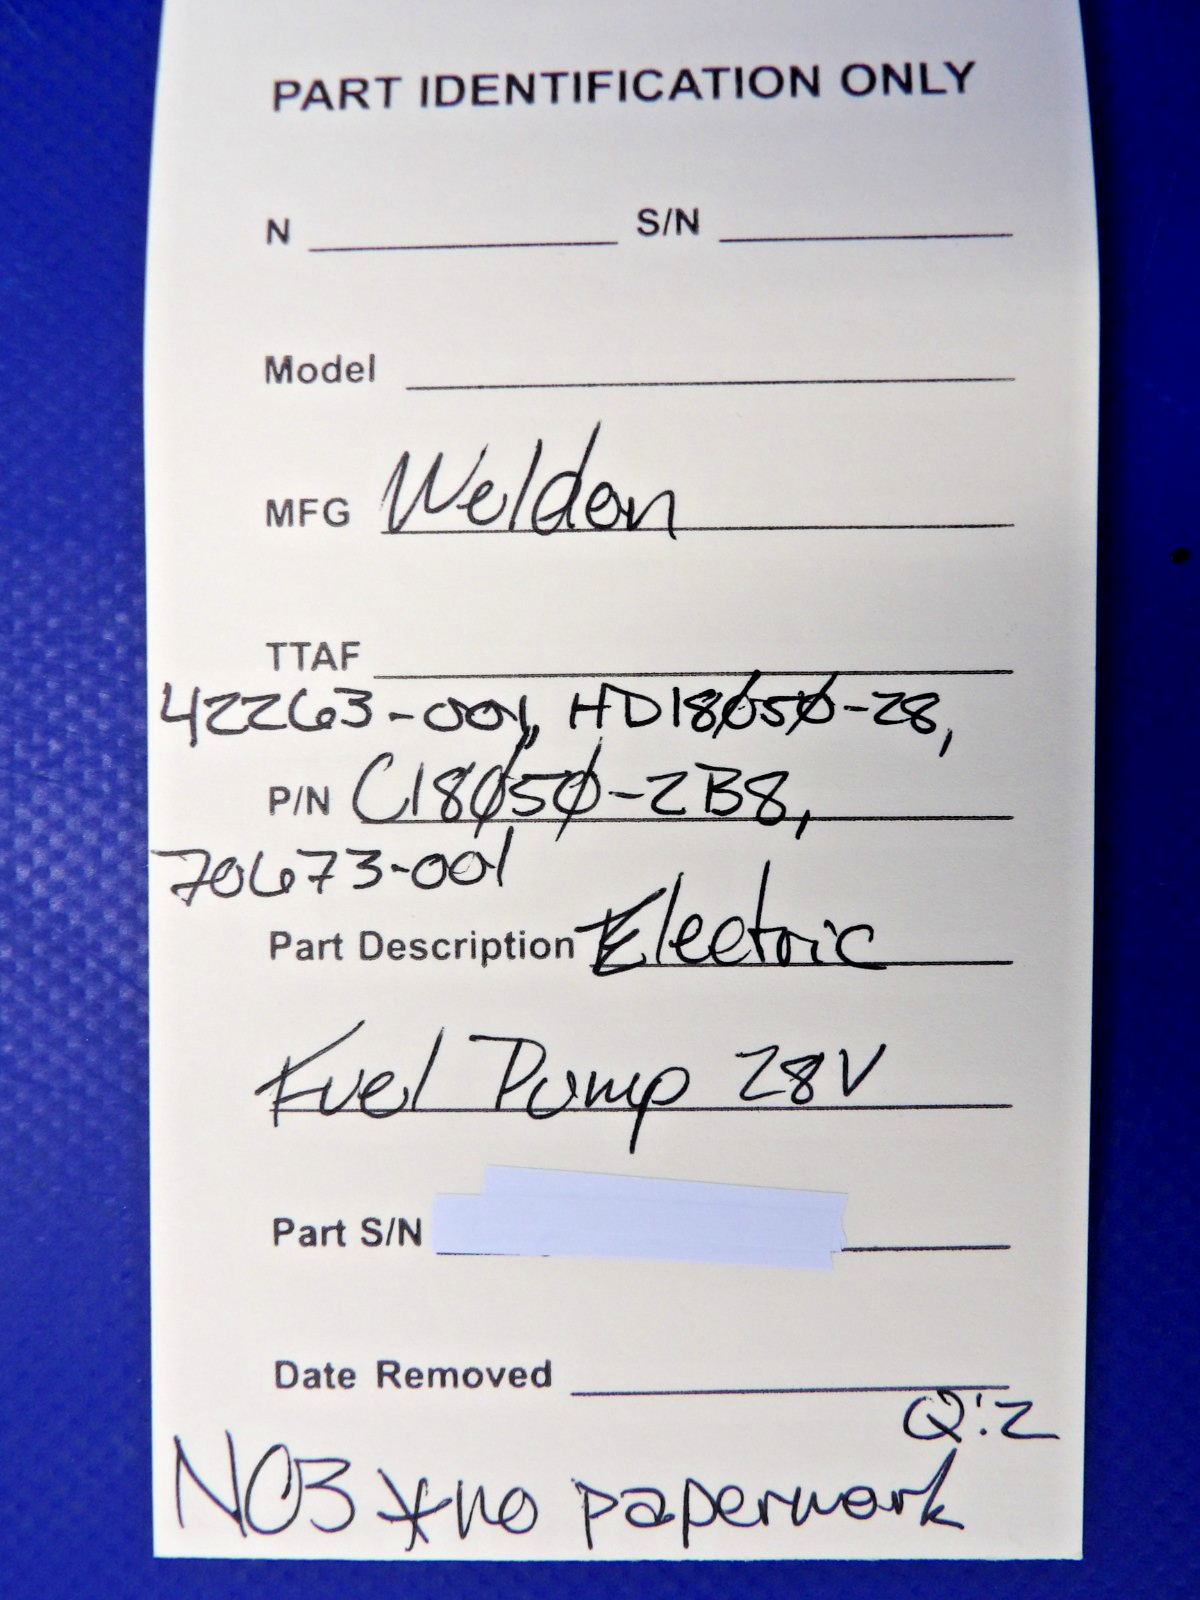 PART IDENTIFICATION ONLY
N S/N
Model
MFG Weldon
TTAF
42263-001, HD18050-28,
P/N C18050-2B8,
70673-001
Part Description Electric
Fuel Pump 28V
Part S/N
Date Removed
Q:2
NO3 *no paperwork